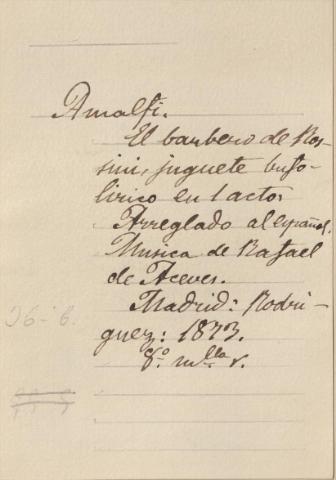 Amalfi.
El barbero de Ros-
sini, juguete bufo-
lírico en 1 acto.
Arreglado al español.
Musica de Rafael
de Aceves.
Madrid: Rodri-
guez: 1873.
8º mlla r.
96-6.